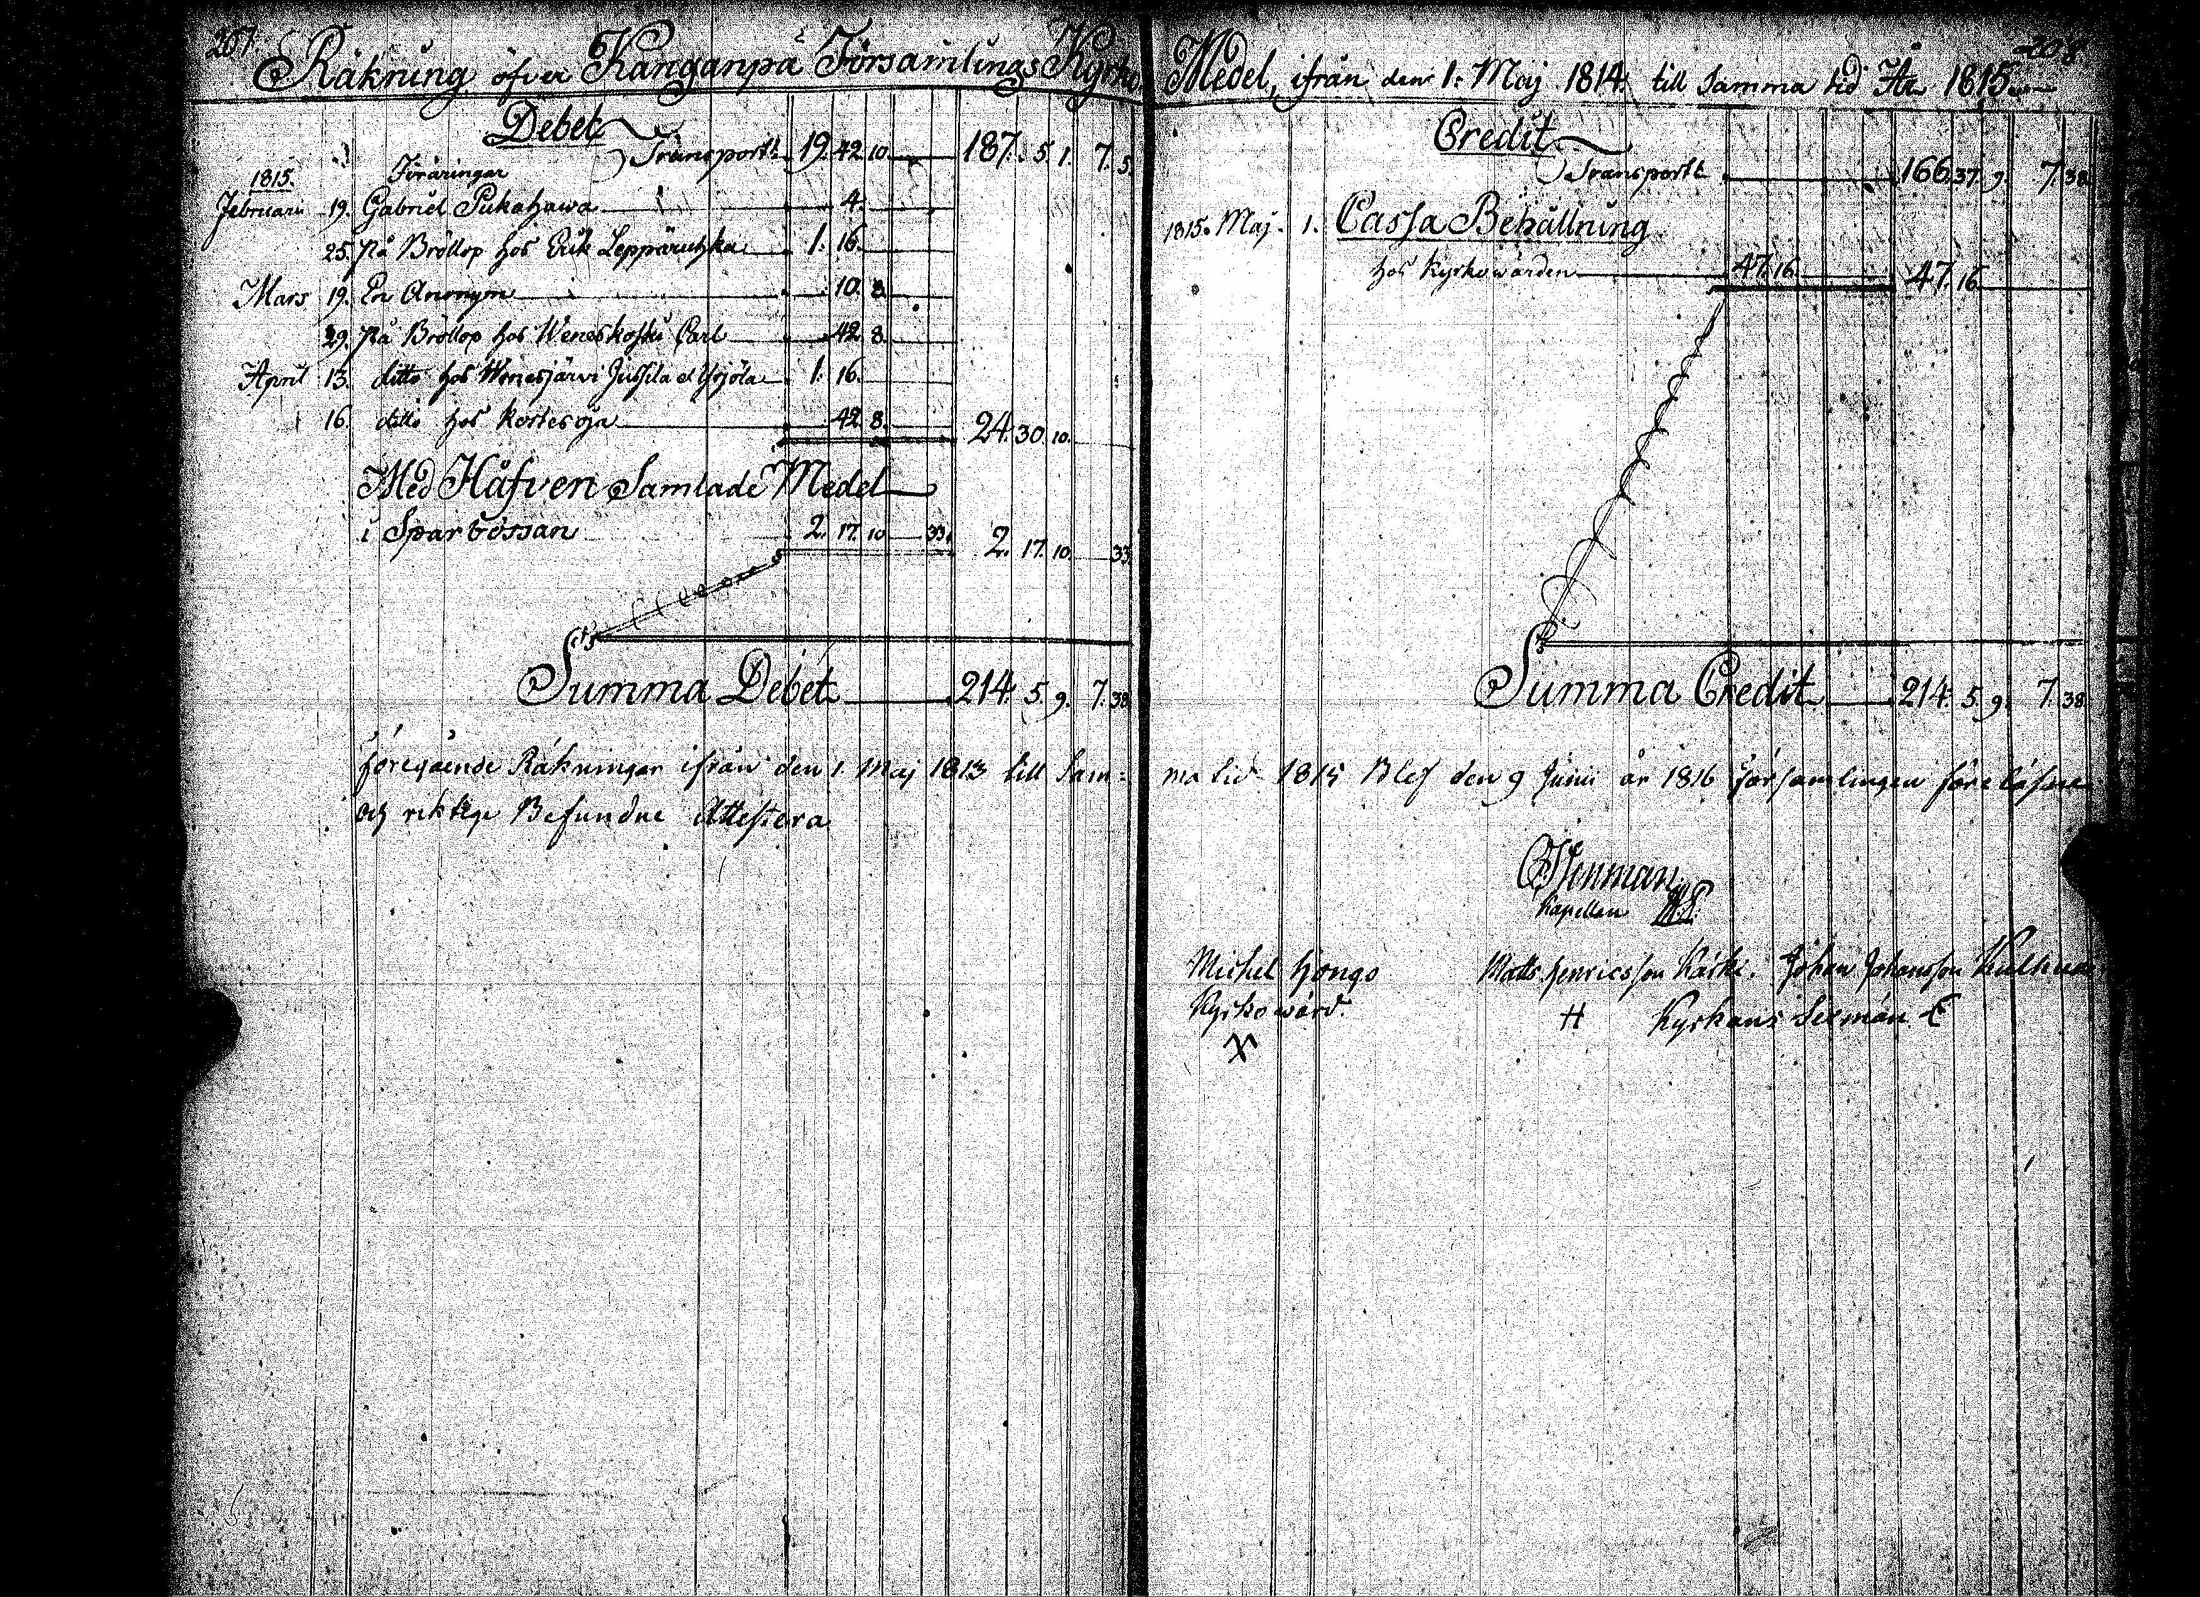 207.
Räkning öfver Kanganpä Församlings Kyrko
Debet
Transport 19. 42. 10. 187. 5. 1. 7. 5.
1815. Föräringar
Februari 19. Gabriel Pukahawa 4.
25. på Bröllop hos Erik Leppäruhka 1. 16.
Mars 19. En Anonym 10. 8.
29. på Bröllop hos Weneskoski Carl 42. 8.
April 13. ditto hos Wenesjärvi Jussila et Yrjola 1. 16.
16. ditto hos Kortesoja 42. 8. 24. 30. 10.
Med Håfven Samlade Medel
i Sparbössan 2. 17. 10. 33. 2. 17. 10. 33.
Summa Debet 214. 5. 9. 7. 38.
föregående Räkningar ifrån den 1. Maj 1813 till Sam=
och riktige Befundne Attestera
208.
Medel, ifrån den 1. Maj 1814 till Samma tid År 1815
Credit
Transport 166. 37. 9. 7. 38.
1815. Maj. 1. Cassa Behållning
hos Kyrkowärden 47. 16. 47. 16.
Summa Credit 214. 5. 9. 7. 38.
ma tid 1815 Blef den 9 Junii år 1816 församlingen föreläsne
Stenman
Kapellan
Michel Hongo Matts Henricsson Kärki. Johan Johansson
Kyrkowärd. H Kyrkans Sexmän
X